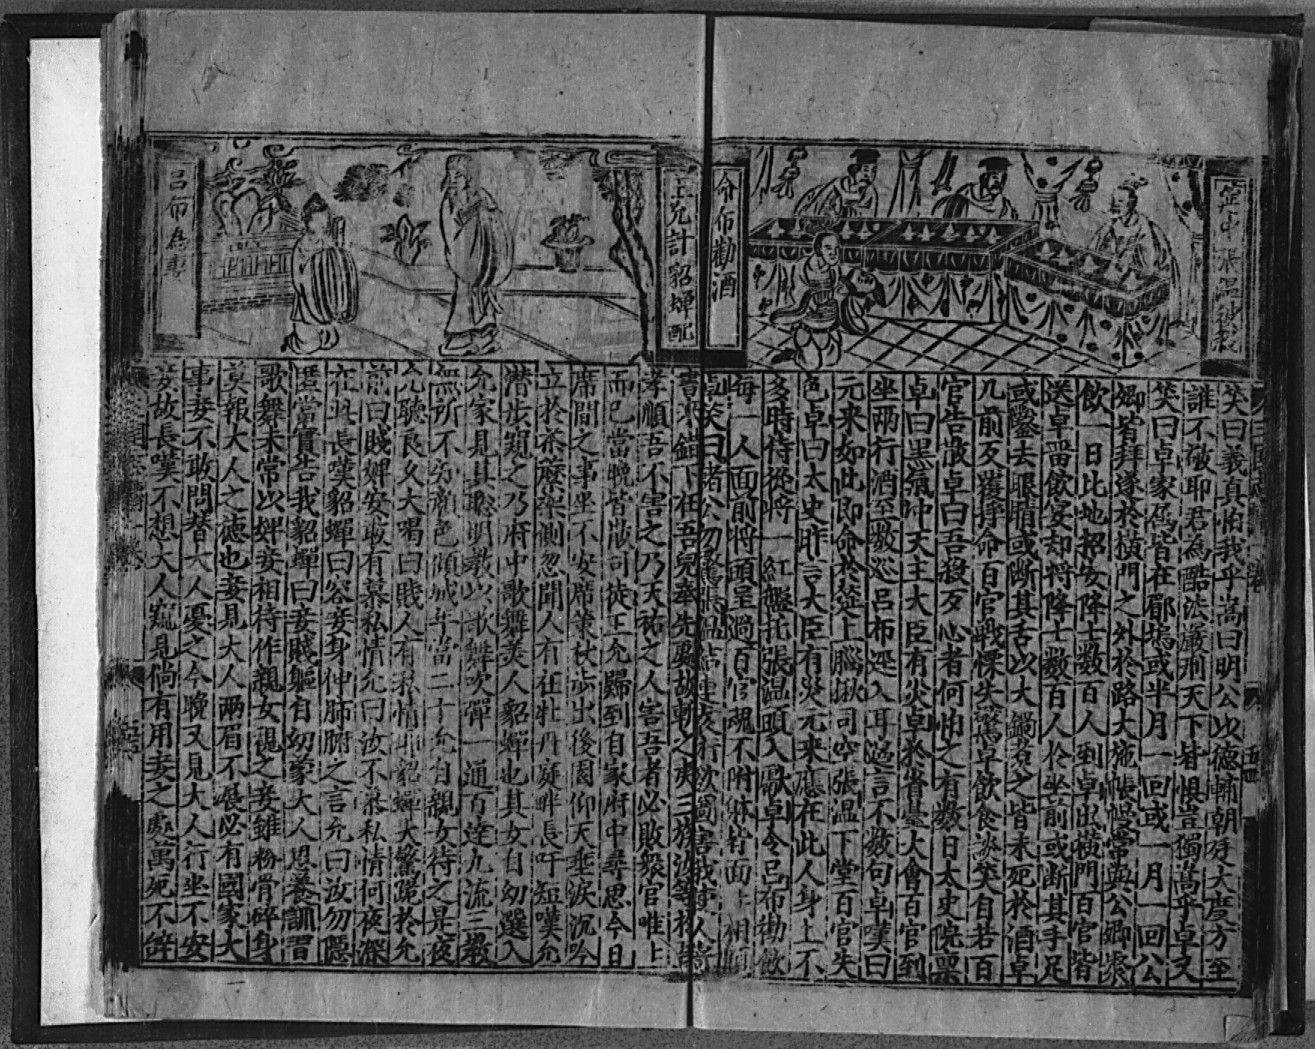 命布勸酒
王允計貂蟬配
呂布為妻
笑曰義真怕我乎嵩曰明公以德輔朝廷大慶方至
誰不敬耶君為酷法嚴刑天下皆懼豈獨嵩乎卓又
笑曰卓家屬皆在郿塢或半月一回或一月一回公
卿皆拜送於橫門之外於路大施帳幔常與公卿聚
飲一日北地招安降士数百人到卓出橫門百官皆
送卓畱飲宴却将降士数百人於坐前或断其手足
或鑿去眼睛或断其舌以大鍋煮之皆未死於酒卓
几前反覆掙命百官戰慄失驚卓飲食談笑自若百
官告散卓曰吾殺歹心者何怕之有数日太史院禀
卓曰黑氣冲天主大臣有灾卓於省臺大會百官到
坐兩行酒至数巡呂布逕入耳邊言不数句卓嘆曰
元来如此即命於筵上腦揪司空張温下堂百官失
色卓曰太史昨言大臣有灾元来應在此人身上不
多時侍從將一紅盤托張温頭入獻卓令呂布勸飲
每一人面前將頭呈過百官魂不附体皆面相
卓笑曰諸公勿驚張温結連
書寄錯下在吾兒奉先處故斬之夷三族汝等
孝順吾不害之乃天祐之人害吾者必敗衆官唯上
而已當晚皆散司徒王允歸到自家府中尋思今日
席間之事坐不安席策杖步出後園仰天垂淚沉吟
立於荼蘼架側忽聞人有在牡丹庭畔長吁短嘆允
潜步窺之乃府中歌舞美人貂蟬也其女自幼選入
允家見其聡明教以歌舞吹彈一通百達九流三教
無所不知顔色傾城年當二十允自親女待之是夜
允聽良久大喝曰賤人有私情耶貂蟬大驚跪於允
前曰賤婢安敢有慕私情允曰汝不慕私情何夜深
在此長嘆貂蟬曰容妾身伸肺腑之言允曰汝勿隱
匿當實告我貂蟬曰妾賤軀自幼蒙大人恩養訓習
歌舞未常以婢妾相待作親女視之妾雖粉骨碎身
莫報大人之德也妾見大人兩眉不展必有國家大
事妾不敢問替大人憂之今晚又見大人行坐不安
妾故長嘆不想大人窺見倘有用妾之處萬死不辞